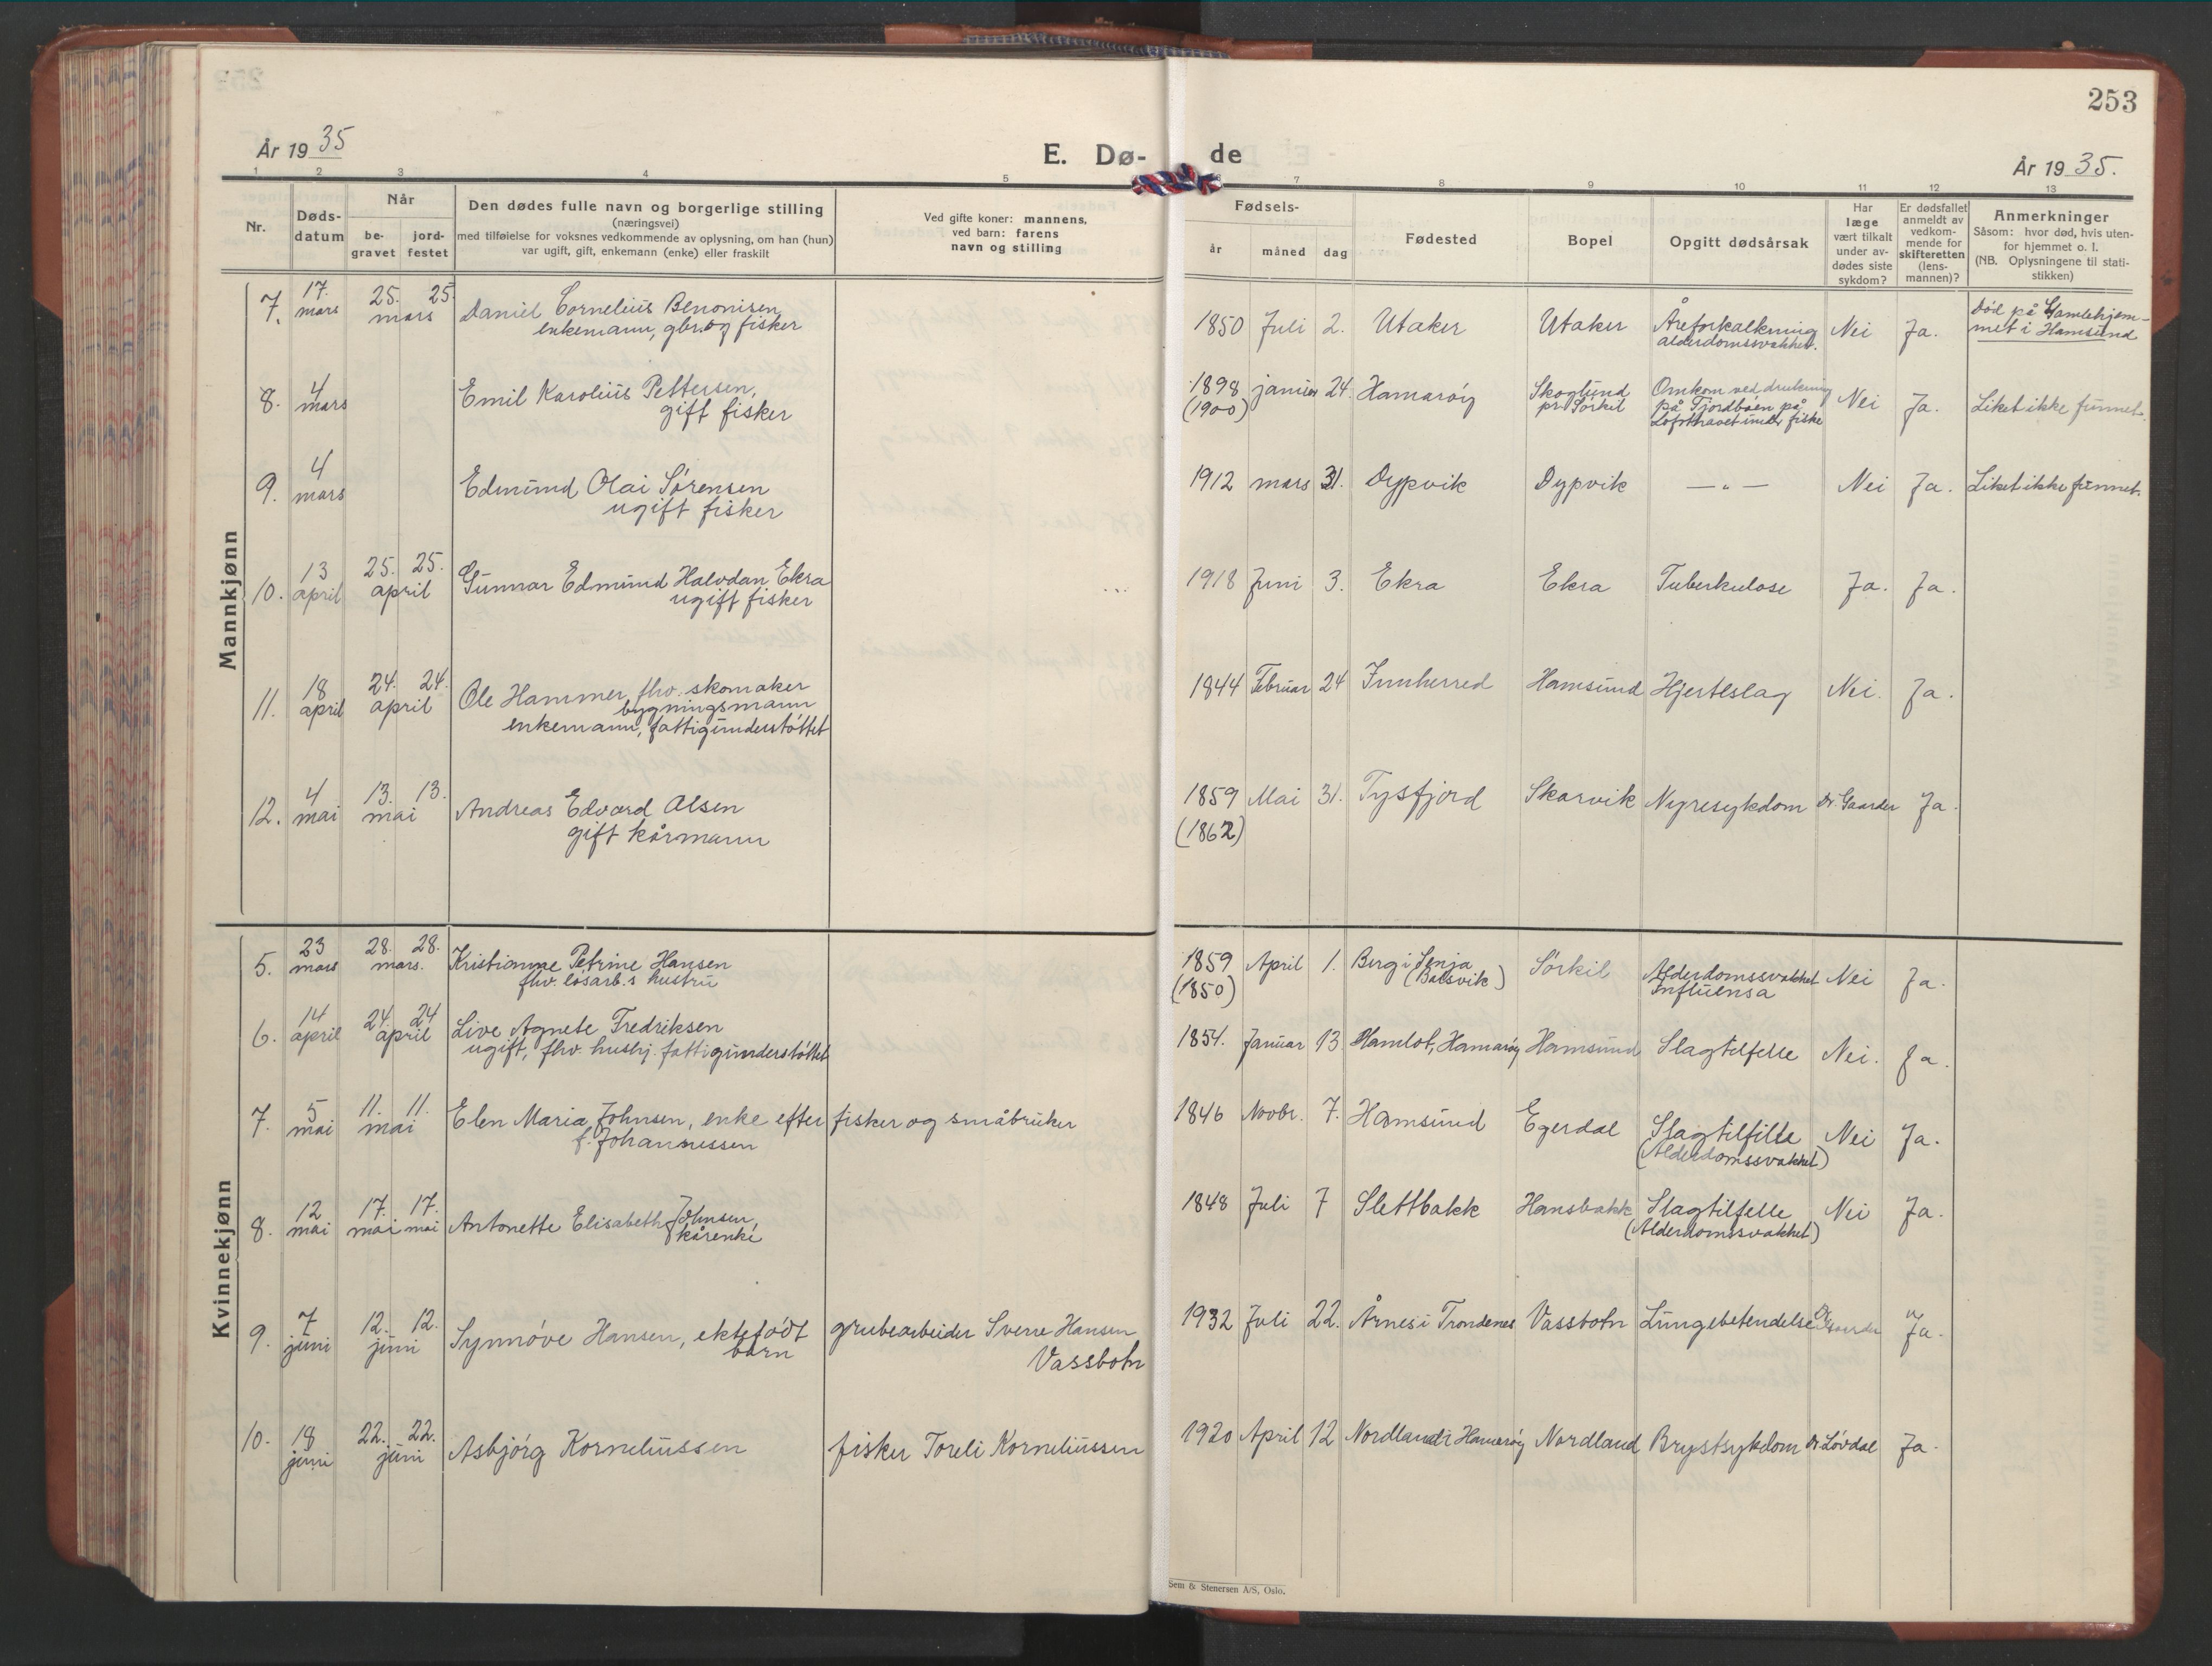 253
År 1935
E. Dø-
de
År 1935.
1 2 3 4 5 6 7 8 9 10 11 12 13
Nr.
Døds-
datum
Når
be-
gravet
jord-
festet
Den dødes fulle navn og borgerlige stilling
(næringsvei)
med tilføielse for voksnes vedkommende av oplysning, om han (hun)
var ugift, gift, enkemann (enke) eller fraskilt
Ved gifte koner: mannens,
ved barn: farens
navn og stilling
Fødsels-
år måned dag
Fødested
Bopel
Opgitt dødsårsak
Har
læge
vært tilkalt
under av-
dødes siste
sykdom?
Er dødsfallet
anmeldt av
vedkom-
mende for
skifteretten
(lens-
mannen)?
Anmerkninger
Såsom: hvor død, hvis uten-
for hjemmet o. l.
(NB. Oplysningene til stati-
stikken)
Mannkjønn
7. 17. mars 25. 25. mars Daniel Cornelius Benonisen
enkemann, gbr. og fisker
1850 Juli 2. Utaker Utaker Åreforkalkning
alderdomssvakhet.
Nei Ja. Død på Gamlehjem-
met i Hamsund
8. 4 mars Emil Karolius Pettersen,
gift fisker
1898 januar 24. Hamarøy
(1900)
Skoglund
pr. Sørkil
Omkom ved drukning
på Fjordbåen på
Lofothavet under fiske
Nei Ja. Liket ikke funnet.
9. 4 mars Edmund Olai Sørensen
ugift fisker
1912 mars 31. Dypvik Dypvik — " — Nei Ja. Liket ikke funnet.
10. 13 april 25. 25. april Gunnar Edmund Halvdan Ekra
ugift fisker
1918 Juni 3. Ekra Ekra Tuberkulose Ja. Ja.
11. 18 april 24. 24. april Ole Hammer, fhv. skomaker
bygningsmann
enkemann, fattigunderstøttet
1844 Februar 24 Innherred Hamsund Hjerteslag Nei. Ja.
12. 4 mai 13. 13. mai Andreas Edvard Olsen
gift kårmann
1859 Mai 31. Tysfjord Skarvik Nyresykdom Dr. Gaarder Ja.
(1862)
Kvinnekjønn
5. 23 mars 28. 28. mars. Kristianne Petrine Hansen
fhv. løsarb.s hustru
1859 April 1. Berg i Senja
(1850) (Balsvik)
Sørkil Alderdomssvakhet
Influensa
Nei Ja.
6. 14 april 24. 24 april Live Agnete Fredriksen
ugift, fhv. hushj. fattigunderstøttet
1854. Januar 13. Hamlot, Hamarøy Hamsund Slagtilfelle Nei. Ja.
7. 5 mai 11. 11. mai Elen Maria Johnsen, enke efter fisker og småbruker
f. Johannessen
1846 Novbr. 7. Hamsund Egerdal Slagtilfelle Nei Ja.
(Alderdomssvakhet)
8. 12 mai 17. mai 17. mai Antonette Elisabeth Johnsen,
kårenke
1848 Juli 7 Slettbakk Hansbakk Slagtilfelle Nei Ja.
(Alderdomssvakhet)
9. 7 juni 12. 12. juni Synnøve Hansen, ektefødt
barn
grubearbeider Sverre Hansen
Vassbotn
1932 Juli 22. Årnes i Trondenes Vassbotn Lungebetendelse Dr Gaarder Ja.
10. 18 juni 22. 22. juni Asbjørg Korneliussen fisker Toreli Korneliussen
1920 April 12 Nordland i Hamarøy Nordland Brystsykdom Dr Løvdal Ja.
Sem & Stenersen A/S, Oslo.